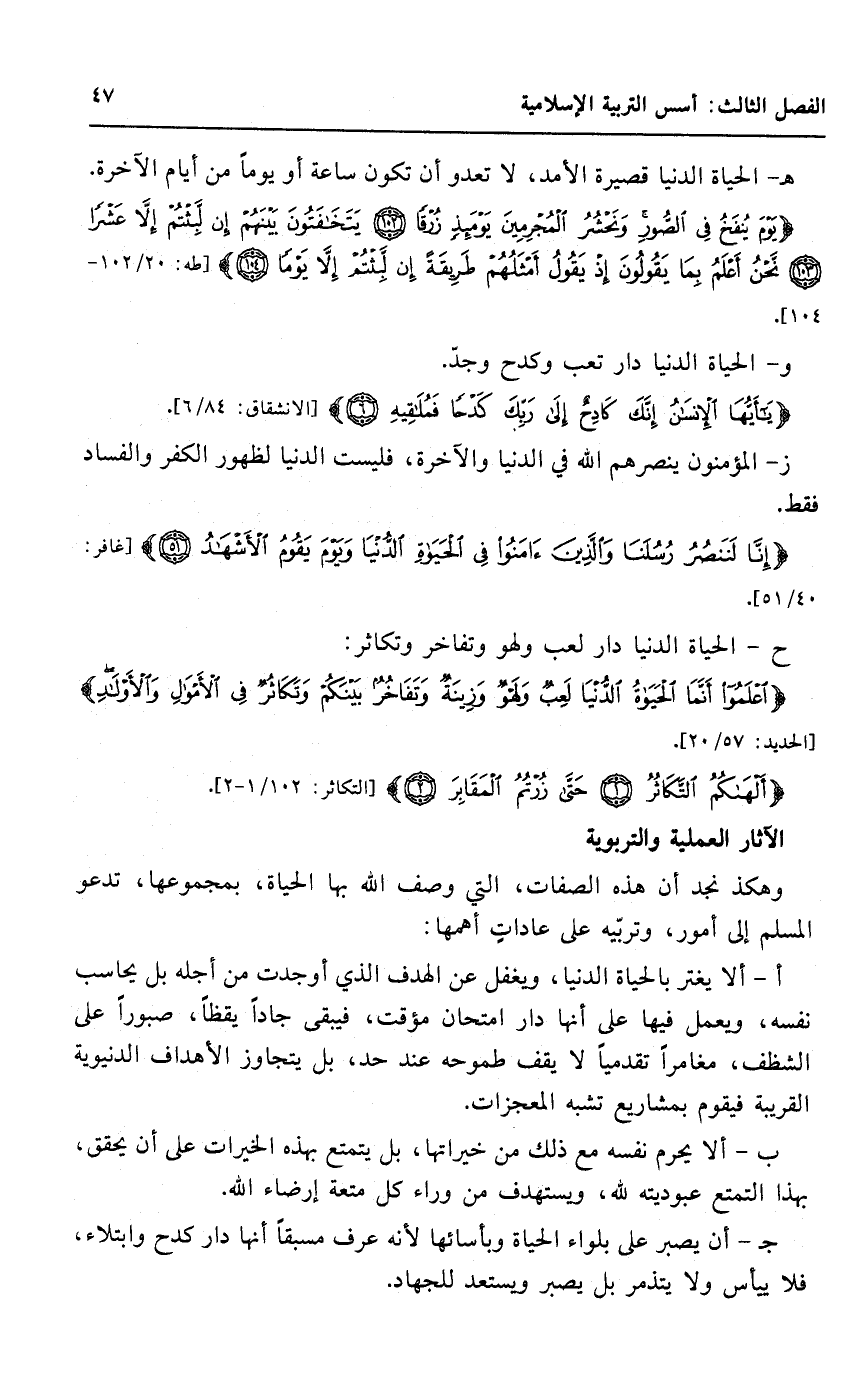 الفصل الثالث: أسس التربية الإسلامية
٤٧
هـ- الحياة الدنيا قصيرة الأمد، لا تعدو أن تكون ساعة أو يوماً من أيام الآخرة.
﴿يَوْمَ يُنفَخُ فِي ٱلصُّورِۚ وَنَحْشُرُ ٱلْمُجْرِمِينَ يَوْمَئِذٍ زُرْقًا ﴿١٠٢﴾ يَتَخَٰفَتُونَ بَيْنَهُمْ إِن لَّبِثْتُمْ إِلَّا عَشْرًا
﴿١٠٣﴾ نَّحْنُ أَعْلَمُ بِمَا يَقُولُونَ إِذْ يَقُولُ أَمْثَلُهُمْ طَرِيقَةً إِن لَّبِثْتُمْ إِلَّا يَوْمًا ﴿١٠٤﴾﴾ [طه: ١٠٢/٢٠-
١٠٤].
و- الحياة الدنيا دار تعب وكدح وجدّ.
﴿يَٰٓأَيُّهَا ٱلْإِنسَٰنُ إِنَّكَ كَادِحٌ إِلَىٰ رَبِّكَ كَدْحًا فَمُلَٰقِيهِ ﴿٦﴾﴾ [الانشقاق: ٦/٨٤].
ز- المؤمنون ينصرهم الله في الدنيا والآخرة، فليست الدنيا لظهور الكفر والفساد
فقط.
﴿إِنَّا لَنَنصُرُ رُسُلَنَا وَٱلَّذِينَ ءَامَنُوا۟ فِي ٱلْحَيَوٰةِ ٱلدُّنْيَا وَيَوْمَ يَقُومُ ٱلْأَشْهَٰدُ ﴿٥١﴾﴾ [غافر:
٥١/٤٠].
ح - الحياة الدنيا دار لعب ولهو وتفاخر وتكاثر:
﴿ٱعْلَمُوٓا۟ أَنَّمَا ٱلْحَيَوٰةُ ٱلدُّنْيَا لَعِبٌ وَلَهْوٌ وَزِينَةٌ وَتَفَاخُرٌۢ بَيْنَكُمْ وَتَكَاثُرٌ فِي ٱلْأَمْوَٰلِ وَٱلْأَوْلَٰدِۖ﴾
[الحديد: ٢٠/٥٧].
﴿أَلْهَىٰكُمُ ٱلتَّكَاثُرُ ﴿١﴾ حَتَّىٰ زُرْتُمُ ٱلْمَقَابِرَ ﴿٢﴾﴾ [التكاثر: ١/١٠٢-٢].
الآثار العملية والتربوية
وهكذ نجد أن هذه الصفات، التي وصف الله بها الحياة، بمجموعها، تدعو
المسلم إلى أمور، وتربّيه على عاداتٍ أهمها:
أ - ألا يغتر بالحياة الدنيا، ويغفل عن الهدف الذي أوجدت من أجله بل يحاسب
نفسه، ويعمل فيها على أنها دار امتحان مؤقت، فيبقى جاداً يقظاً، صبوراً على
الشظف، مغامراً تقدمياً لا يقف طموحه عند حد، بل يتجاوز الأهداف الدنيوية
القريبة فيقوم بمشاريع تشبه المعجزات.
ب - ألا يحرم نفسه مع ذلك من خيراتها، بل يتمتع بهذه الخيرات على أن يحقق،
بهذا التمتع عبوديته لله، ويستهدف من وراء كل متعة إرضاء الله.
جـ - أن يصبر على بلواء الحياة وبأسائها لأنه عرف مسبقاً أنها دار كدح وابتلاء،
فلا ييأس ولا يتذمر بل يصبر ويستعد للجهاد.